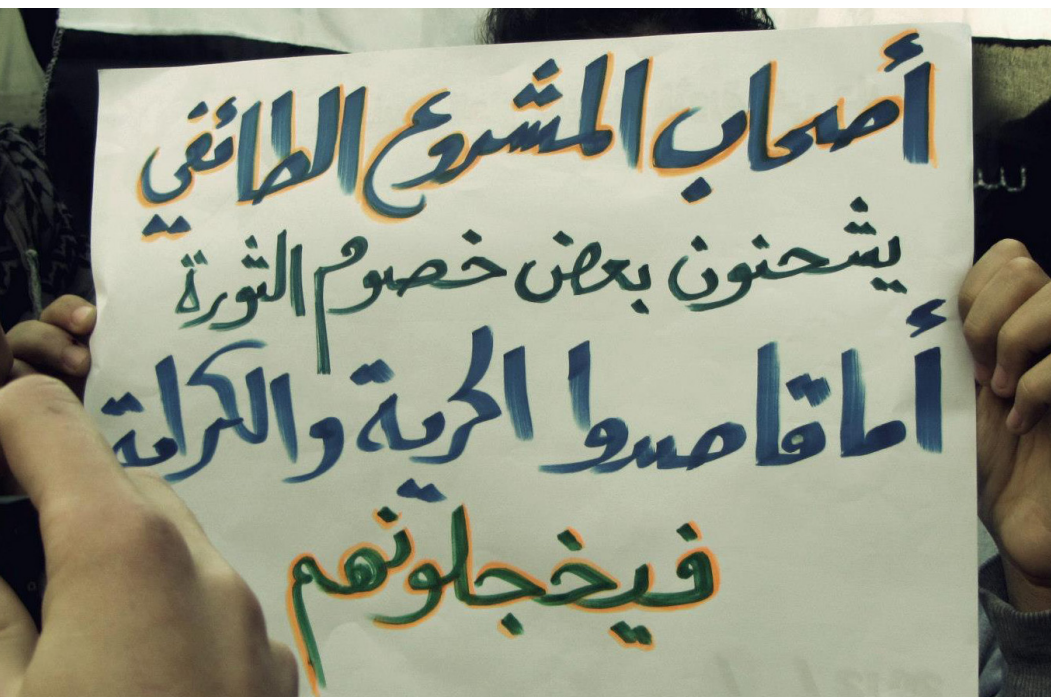 أصحاب المشروع الطائفي
يشحنون بعض خصوم الثورة
أما قاصدوا الحرية والكرامة
فيخجلونهم